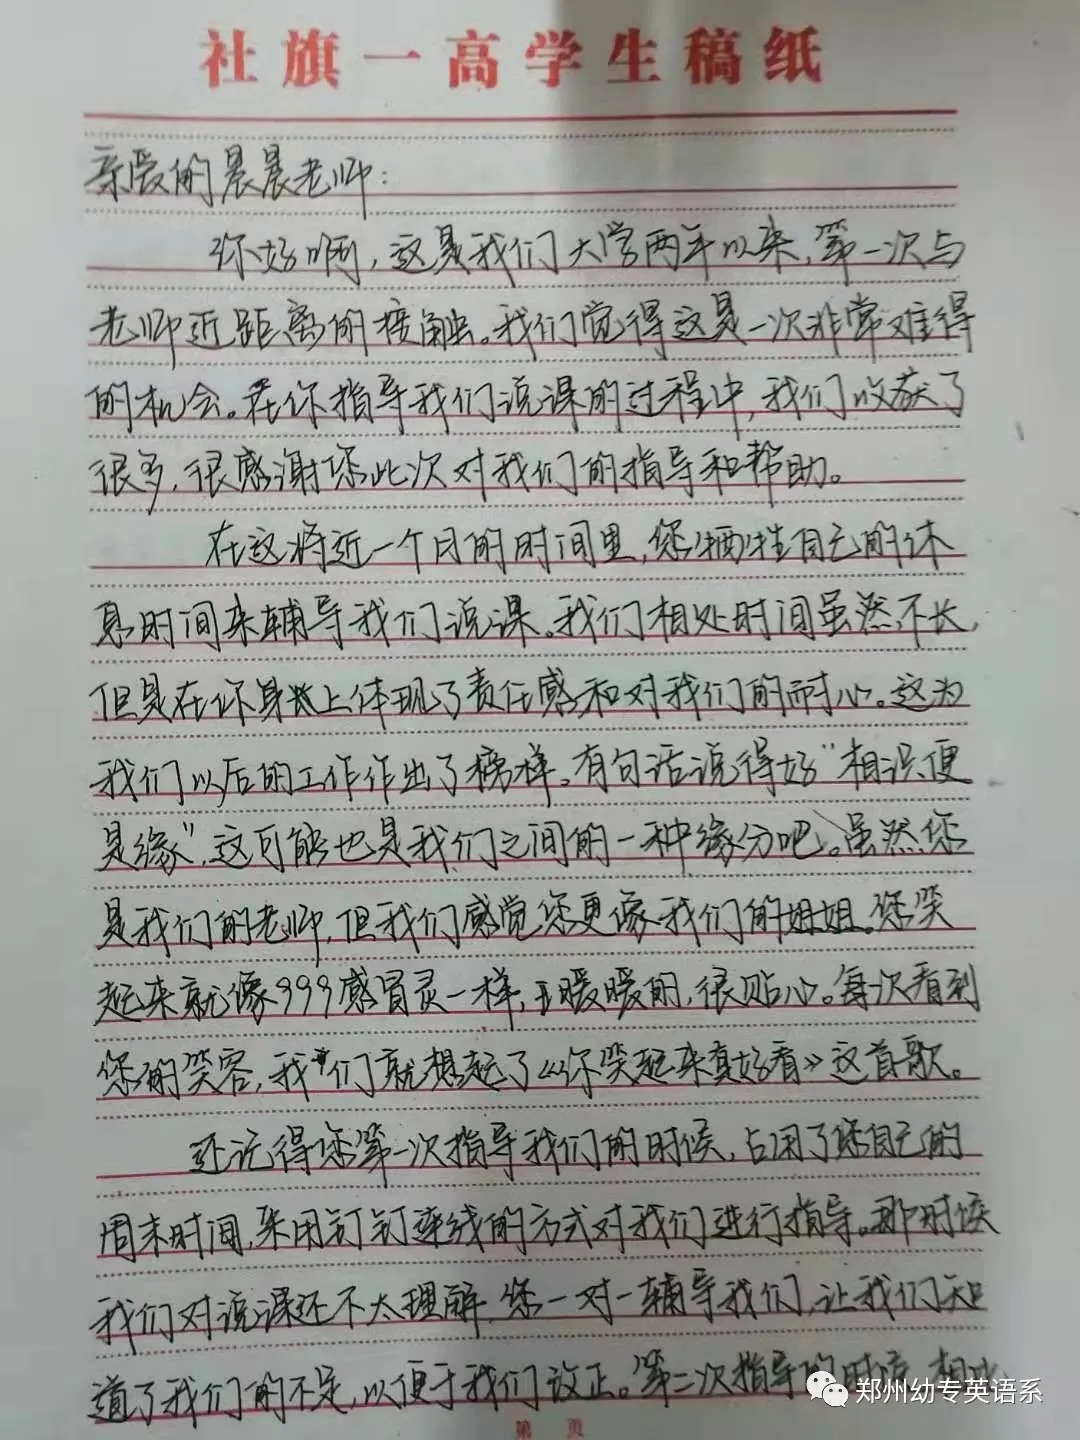 社旗一高学生稿纸
亲爱的晨晨老师：
你好啊，这是我们大学两年以来，第一次与
老师近距离的接触。我们觉得这是一次非常难得
的机会。在你指导我们说课的过程中，我们收获了
很多，很感谢您此次对我们的指导和帮助。
在这将近一个月的时间里，您牺牲自己的休
息时间来辅导我们说课。我们相处时间虽然不长，
但是在你身上体现了责任感和对我们的耐心。这为
我们以后的工作作出了榜样。有句话说得好"相识便
是缘"，这可能也是我们之间的一种缘分吧。虽然您
是我们的老师，但我们感觉您更像我们的姐姐。您笑
起来就像999感冒灵一样，暖暖的，很贴心。每次看到
您的笑容，我们就想起了《你笑起来真好看》这首歌。
还记得您第一次指导我们的时候，占用了您自己的
周末时间，采用钉钉连线的方式对我们进行指导。那时候
我们对说课还不太理解，您一对一辅导我们，让我们知
道了我们的不足，以便于我们改正。第二次指导的时候，相比
第 页
郑州幼专英语系